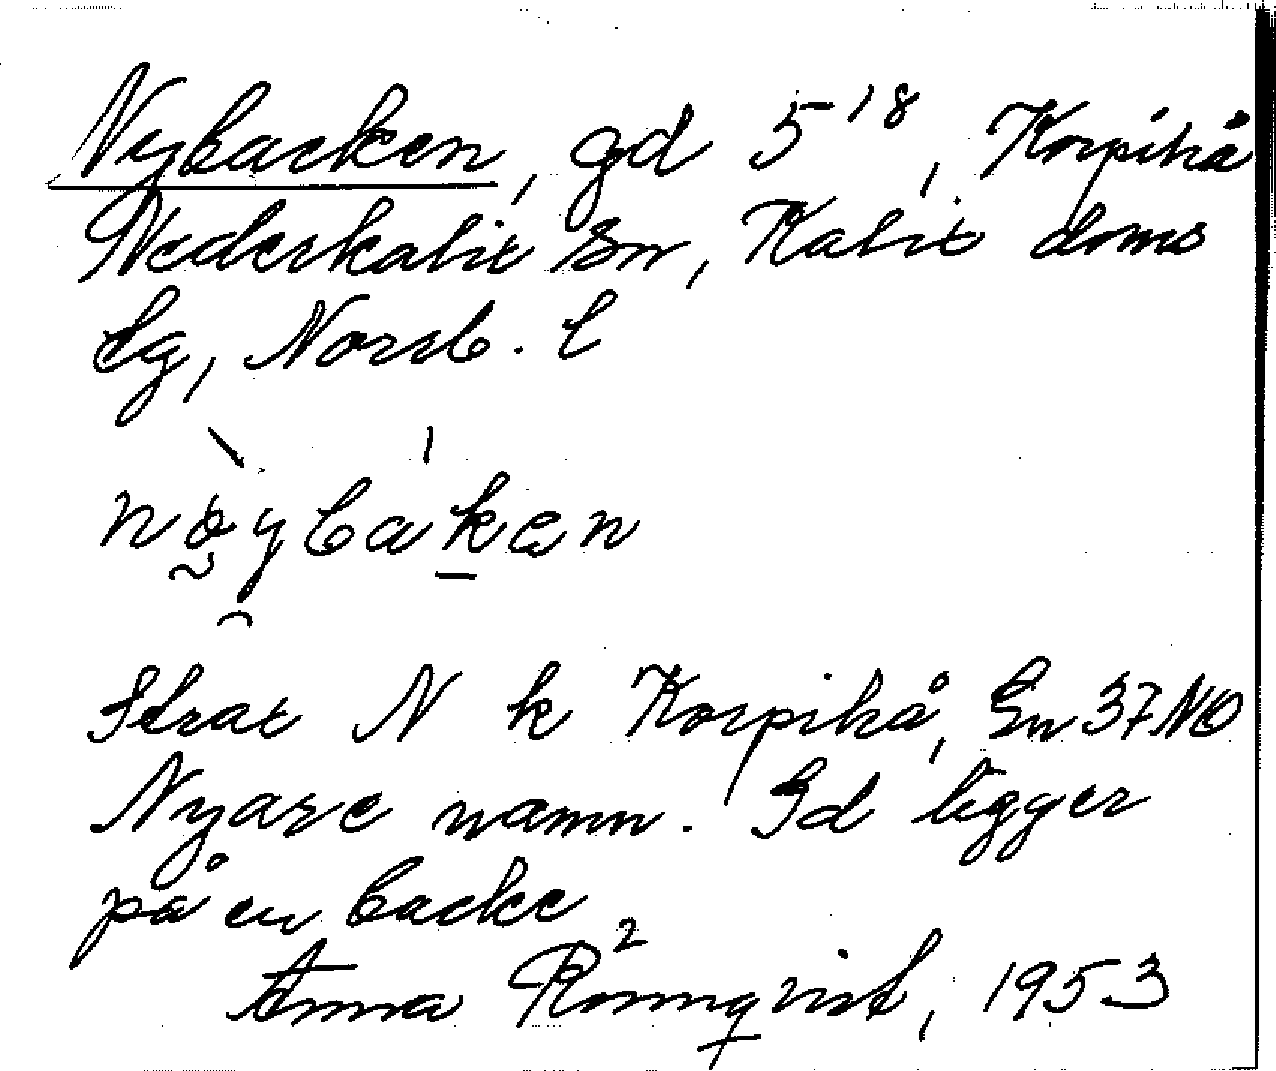 Nybacken, gd 5¹⁸, Korpikå
Nederkalix sn, Kalix doms
lg, Norrb. l
nöybaken
Strax N k Korpikå, Gn 37 NO
Nyare namn. Gd ligger
på en backe
Anna Rönnqvist, 1953